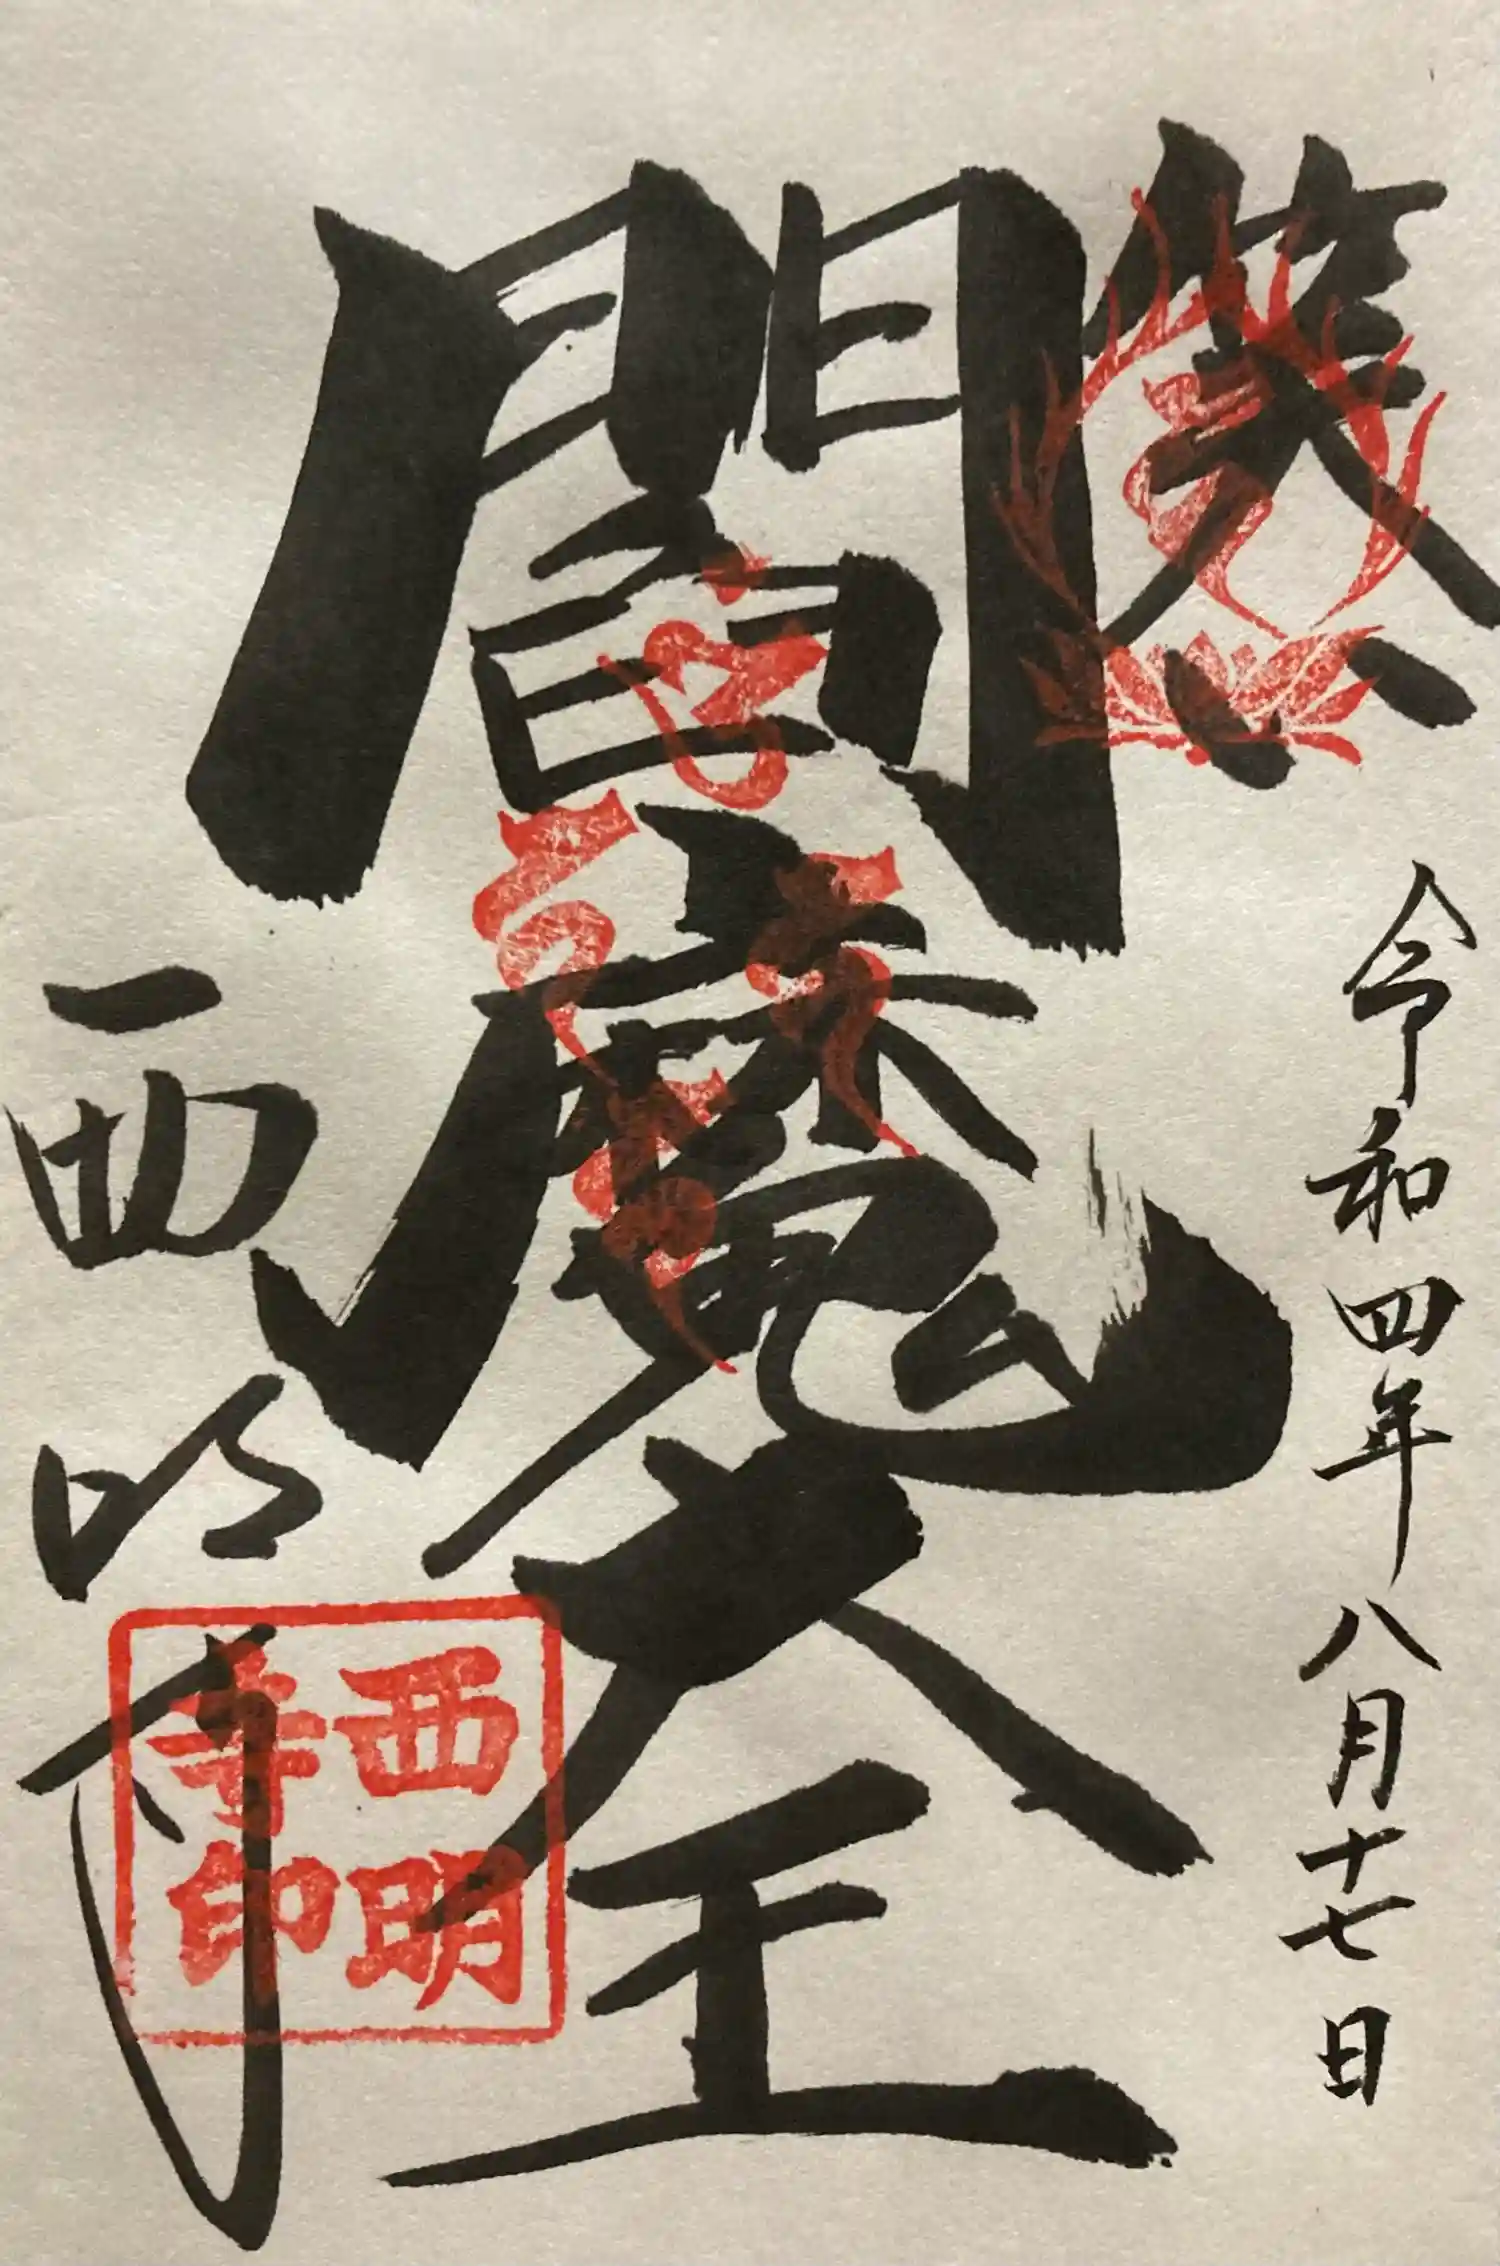 令和四年八月十七日
閻魔大王
西明寺
西明
寺印